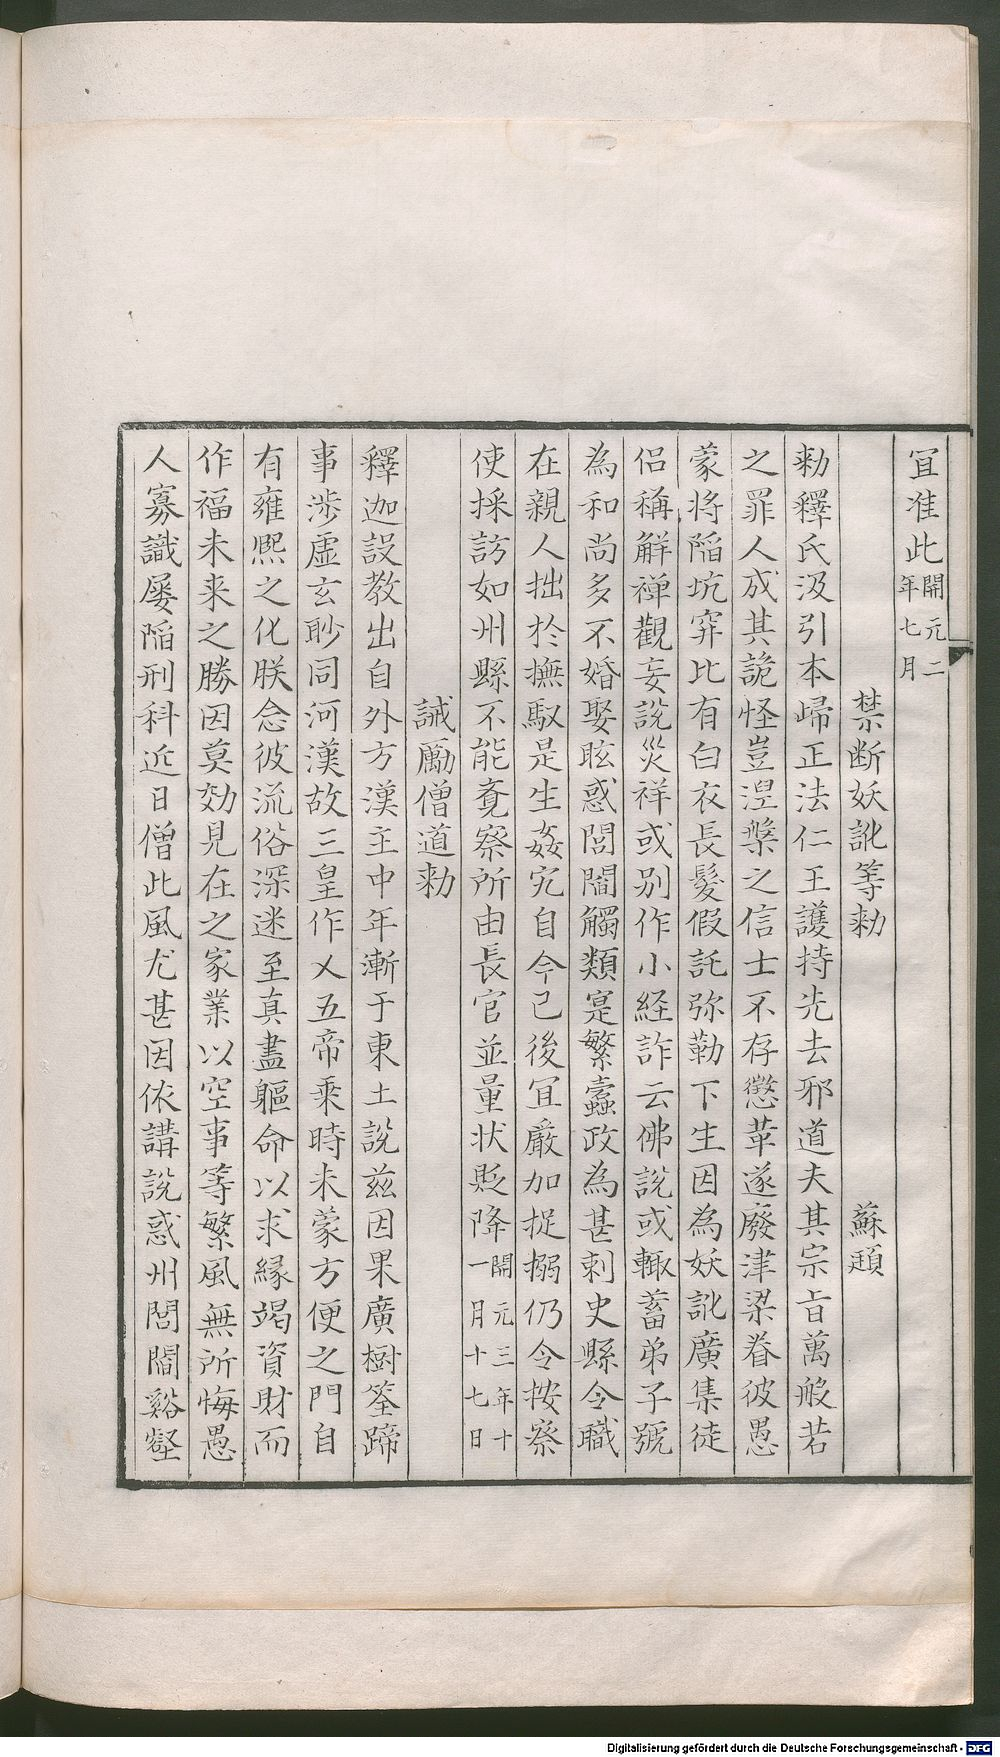 宜准此開元二年七月
禁断妖訛等勅 蘇頲
勅釋氏汲引本歸正法仁王護持先去邪道夫其宗旨萬般若
之罪人成其詭怪豈涅槃之信士不存懲革遂廢津梁眷彼愚
蒙將陷坑穽比有白衣長髮假託弥勒下生因為妖訛廣集徒
侶稱解禅觀妄說災祥或别作小経詐云佛說或輙蓄弟子號
為和尚多不婚娶眩惑閭閻觸類寔繁蠹政為甚刺史縣令職
在親人拙於撫馭是生姦宄自今已後宜厳加捉搦仍令按察
使採訪如州縣不能覔察所由長官並量状貶降開元三年十一月十七日
誡勵僧道勅
釋迦設教出自外方漢主中年漸于東土說兹因果廣樹筌蹄
事涉虚玄眇同河漢故三皇作乂五帝乘時未蒙方便之門自
有雍熈之化朕念彼流俗深迷至真盡軀命以求縁竭資財而
作福未来之勝因莫効見在之家業以空事等繁風無所悔愚
人寡識屡陷刑科近日僧此風尤甚因依講說惑州閭閻谿壑